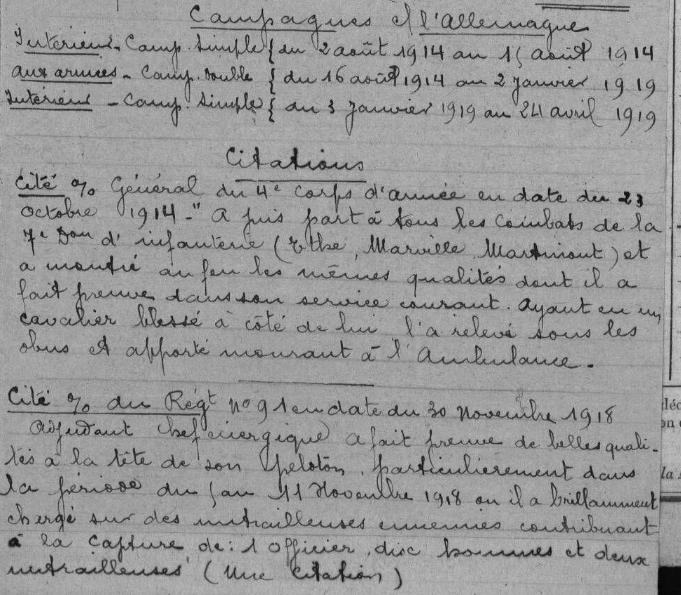 Campagnes c/ l'Allemagne
Intérieur - Camp. Simple { du 2 août 1914 au 15 août 1914
aux armées - Camp. double { du 16 août 1914 au 2 janvier 1919
Intérieur - Camp. simple { du 3 janvier 1919 au 24 avril 1919
Citations
Cité % Général du 4e corps d'armée en date du 23
octobre 1914 - " A pris part à tous les combats de la
7e Don d'infanterie (Ethe, Marville, Martincourt) et
a montré au feu les mêmes qualités dont il a
fait preuve dans son service courant. Ayant eu un
cavalier blessé à côté de lui l'a relevé sous les
obus et apporté mourant à l'Ambulance.
Cité % du Régt no 91 en date du 30 Novembre 1918
Adjudant chef énergique a fait preuve de belles quali-
tés à la tête de son peloton, particulièrement dans
la période du 5 au 11 Novembre 1918 où il a brillamment
chargé sur des mitrailleuses ennemies contribuant
à la capture de : 1 officier, dix hommes et deux
mitrailleuses (Une Citation)